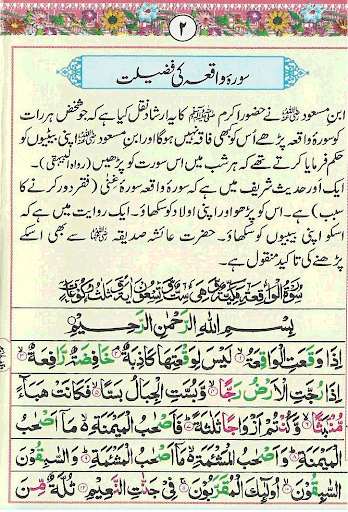 ۲
سورۂ واقعہ کی فضیلت
ابنِ مسعود رضی اللہ عنہ نے حضورِ اکرم ﷺ کا یہ ارشاد نقل کیا ہے کہ جو شخص ہر رات
کو سورۂ واقعہ پڑھے اس کو کبھی فاقہ نہیں ہوگا اور ابنِ مسعود رضی اللہ عنہ اپنی بیٹیوں کو
حکم فرمایا کرتے تھے کہ ہر شب میں اس سورت کو پڑھیں (رواہ البیہقی)۔
ایک اور حدیث شریف میں ہے کہ سورۂ واقعہ سورۂ غِنٰی (فقر دور کرنے کا
سبب) ہے۔ اس کو پڑھو اور اپنی اولاد کو سکھاؤ۔ ایک روایت میں ہے کہ
اسکو اپنی بیبیوں کو سکھاؤ۔ حضرت عائشہ صدیقہ رضی اللہ عنہا سے بھی اسکے
پڑھنے کی تاکید منقول ہے۔
سُوْرَةُ الْوَاقِعَةِ مَكِّيَّةٌ وَّهِيَ سِتٌّ وَّتِسْعُوْنَ اٰيَةً وَّثَلٰثُ رُكُوْعَاتٍ
بِسْمِ اللّٰهِ الرَّحْمٰنِ الرَّحِيْمِ
اِذَا وَقَعَتِ الْوَاقِعَةُ ۙ لَيْسَ لِوَقْعَتِهَا كَاذِبَةٌ ۘ خَافِضَةٌ رَّافِعَةٌ ۙ
اِذَا رُجَّتِ الْاَرْضُ رَجًّا ۙ وَّبُسَّتِ الْجِبَالُ بَسًّا ۙ فَكَانَتْ هَبَآءً
مُّنْۢبَثًّا ۙ وَّكُنْتُمْ اَزْوَاجًا ثَلٰثَةً ؕ فَاَصْحٰبُ الْمَيْمَنَةِ ۙ مَاۤ اَصْحٰبُ
الْمَيْمَنَةِ ؕ وَاَصْحٰبُ الْمَشْئَمَةِ ۙ مَاۤ اَصْحٰبُ الْمَشْئَمَةِ ؕ وَالسّٰبِقُوْنَ
السّٰبِقُوْنَ ۙ اُولٰٓئِكَ الْمُقَرَّبُوْنَ ۚ فِيْ جَنّٰتِ النَّعِيْمِ ۙ ثُلَّةٌ مِّنَ